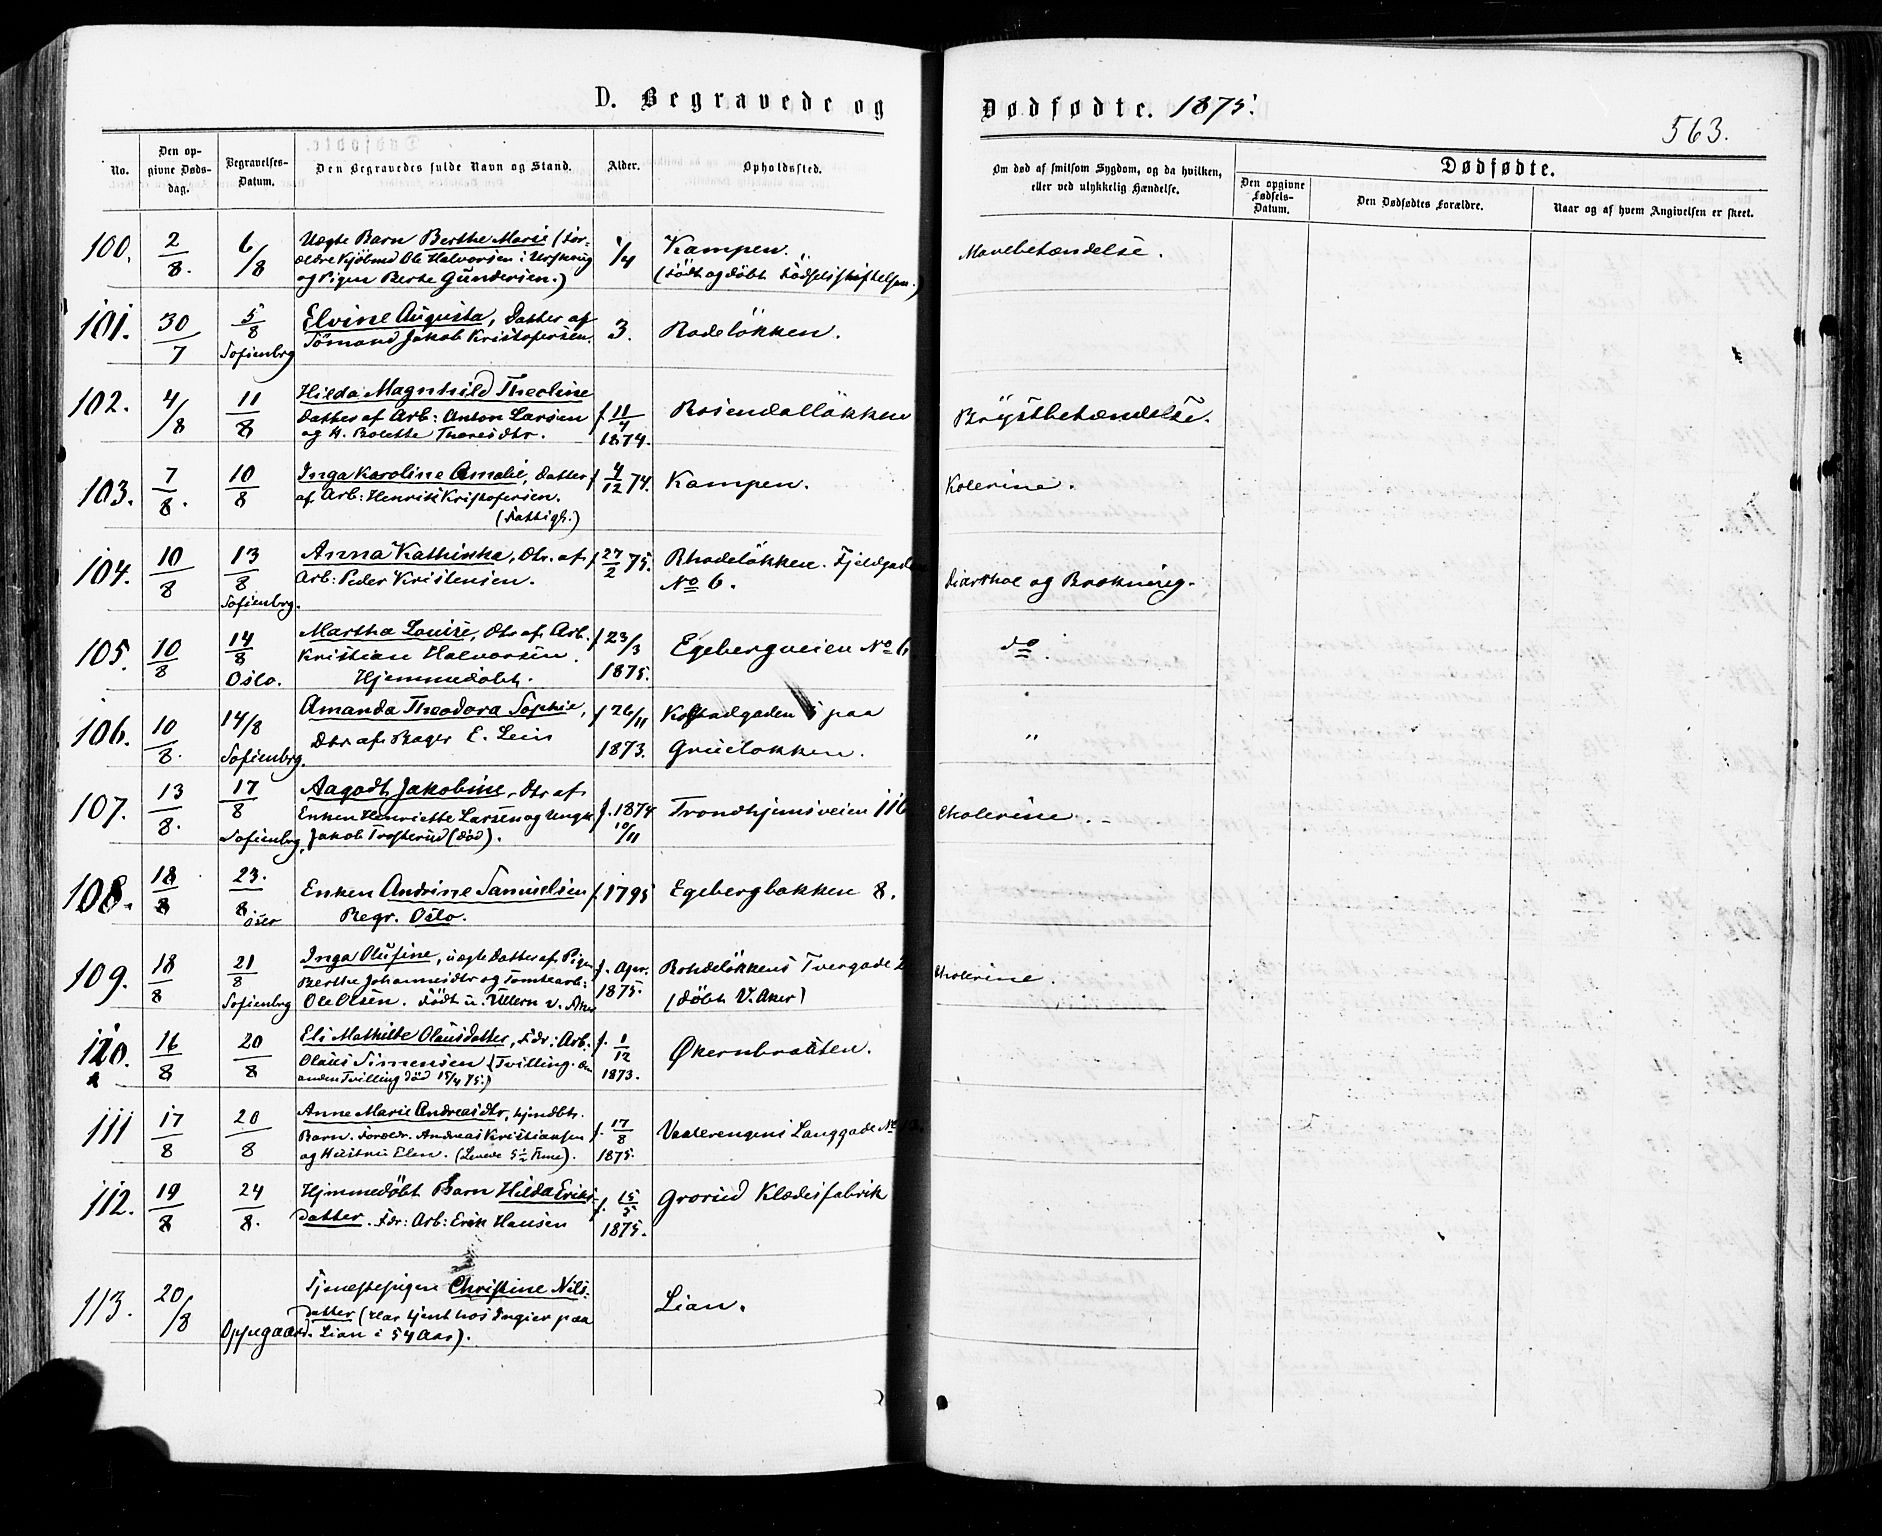 D. Begravede og
Dødfødte. 1875.
563.
No.
Den op-
givne Døds-
dag.
Begravelses-
Datum.
Den Begravedes fulde Navn og Stand.
Alder.
Opholdssted.
Om død af smitsom Sygdom, og da hvilken,
eller ved ulykkelig Hændelse.
Dødfødte.
Den opgivne
Fødsels-
Datum.
Den Dødfødtes Forældre.
Naar og af hvem Angivelsen er skeet.
100. 2/8. 6/8 Uægte Barn Berthe Marie (For- 1/4 Kampen. Mavebetændelse.
ældre Kjölmd Ole Halvorsen i Urskoug
og Pigen Berte Gundersen.) (Född og döbt Födselsstiftelsen.)
101. 30/7 5/8 Elvine Augusta, Datter af 3. Rodelökken.
Sofienbrg Sömand Jakob Kristofersen.
102. 4/8 11/8 Hilda Magnhild Theoline
Datter af Arb: Anton Larsen f 11/4 Rosendalløkken Bröystbetændelse.
og H. Bolette Thoresdtr. 1874.
103. 7/8. 10/8 Inga Karoline Amalie, Datter f 4/12 74. Kampen. Kolerine.
af Arb: Henrik Kristofersen.
(Fattigh.)
104. 10/8 13/8 Anna Kathinka, Dtr. af f 27/2 75. Rhodelökken. Fjeldgaden
Arb: Peder Kristensen. No 6. Diarrhoe og Brækning.
Sofienbrg.
105. 10/8 14/8 Martha Louise, Dtr af Arb. f 23/3 Egebergveien No 6 do.
Kristian Halvorsen.
Oslo. Hjemmedöbt. 1875.
106. 10/8. 14/8 Amanda Theodora Sophie, f 26/11 paa "
Dtr. af Bager E. 1873. Grüelokken.
Sofienbrg.
107. 13/8. 17/8 Aagodt Jakobine, Dtr af
Enken Henriette Larsen og Ungk f. 1874 Trondhjemsveien 116 Cholerine.
Sofienbrg, Jakob Trosterud (död). 10/11
108. 18/8 23./8. Enken Andrine Samuelsen f. 1795 Egebergbakken 8.
Begr. Oslo.
109. 18/8 21/8 Inga Olufine, uægte Datter af Pigen f. Apr. Rohdelökkens Tvergade 2 Cholerine.
Berthe Johannesdtr og Tomtearb: 1875.
Sofienbrg Ole Olsen. Födt i Ullern V. Aker (döbt V. Aker)
110. 16/8 20/8 Eli Mathilte Olausdatter, Fdr: Arb. f. 1/12 Økernbraaten.
Olaus Simensen (Tvilling. den
anden Tvilling död 15/4 75.) 1873.
111 17/8 20/8 Anne Marie Andreasdtr, hjmdbt. f. 17/8 Vaalerengens Langgade No
Barn. Forældr. Andreas Kristiansen
og Hustru Elen. (Levede 5 1/2 Time). 1875.
112. 19/8 24/8. Hjemmedöbt Barn Hilda Eriks- f. 15/5 Grorud Klædesfabrik
datter. Fdr: Arb: Erik Hansen 1875.
113. 20/8 Tjenestepigen Christine Nils- Lian.
datter (Har tjent hos Ingier paa
Oppegaard. Lian i 54 Aar).